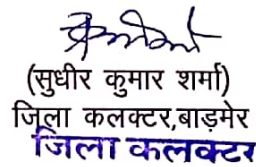 (सुधीर कुमार शर्मा)
जिला कलक्टर,बाड़मेर
जिला कलक्टर